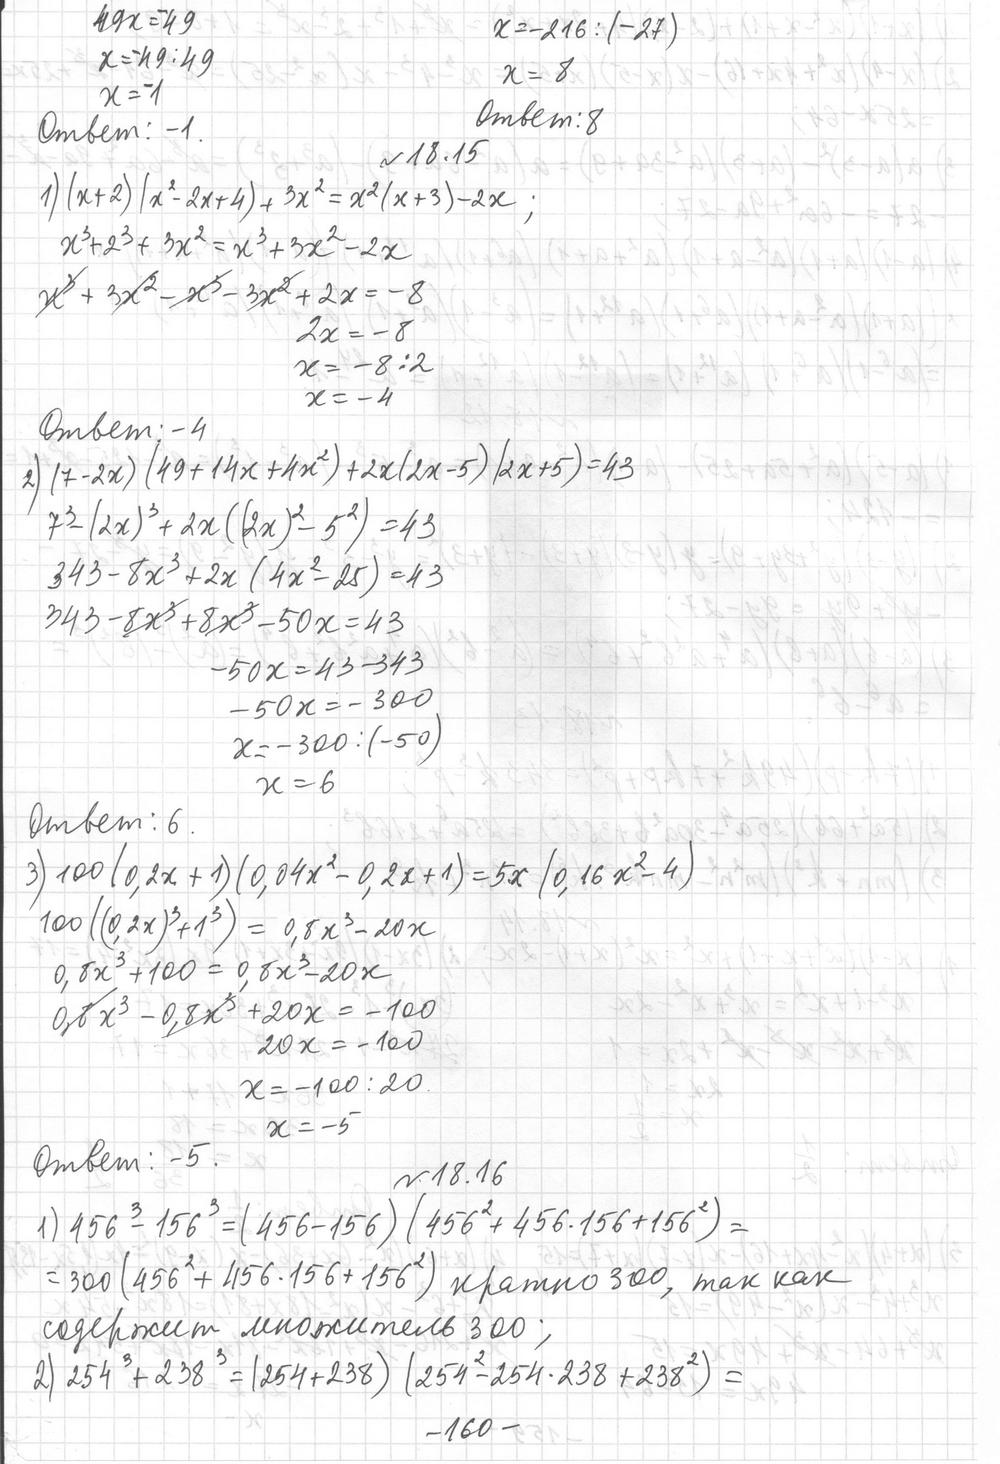 49x=-49
x=-49:49
x=-1
Ответ: -1.
x=-216:(-27)
x=8
Ответ: 8
№18.15
1) (x+2)(x²-2x+4)+3x²=x²(x+3)-2x;
x³+2³+3x²=x³+3x²-2x
x³+3x²-x³-3x²+2x=-8
2x=-8
x=-8:2
x=-4
Ответ: -4
2) (7-2x)(49+14x+4x²)+2x(2x-5)(2x+5)=43
7³-(2x)³+2x((2x)²-5²)=43
343-8x³+2x(4x²-25)=43
343-8x³+8x³-50x=43
-50x=43-343
-50x=-300
x=-300:(-50)
x=6
Ответ: 6.
3) 100(0,2x+1)(0,04x²-0,2x+1)=5x(0,16x²-4)
100((0,2x)³+1³)=0,8x³-20x
0,8x³+100=0,8x³-20x
0,8x³-0,8x³+20x=-100
20x=-100
x=-100:20
x=-5
Ответ: -5.
№18.16
1) 456³-156³=(456-156)(456²+456·156+156²)=
=300(456²+456·156+156²) кратно 300, так как
содержит множитель 300;
2) 254³+238³=(254+238)(254²-254·238+238²)=
-160-